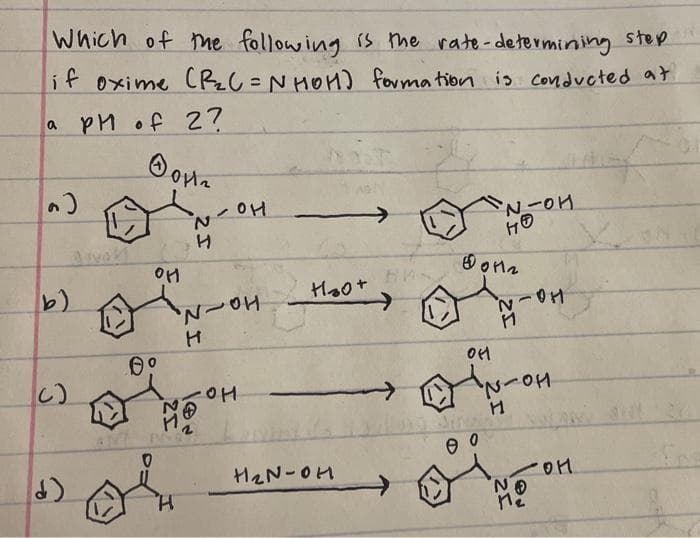 Which of the following is the rate-determining step
if oxime (R₂C=NHOH) formation is conducted at
a pH of 2?
a)
⊕OH₂
N-OH
H
N-OH
H⊕
b)
OH
N-OH
H
H₃O+
⊕OH₂
N-OH
H
c)
⊖O
N⊕-OH
H₂
OH
N-OH
H
d)
O
H
H₂N-OH
⊖O
N⊕-OH
H₂